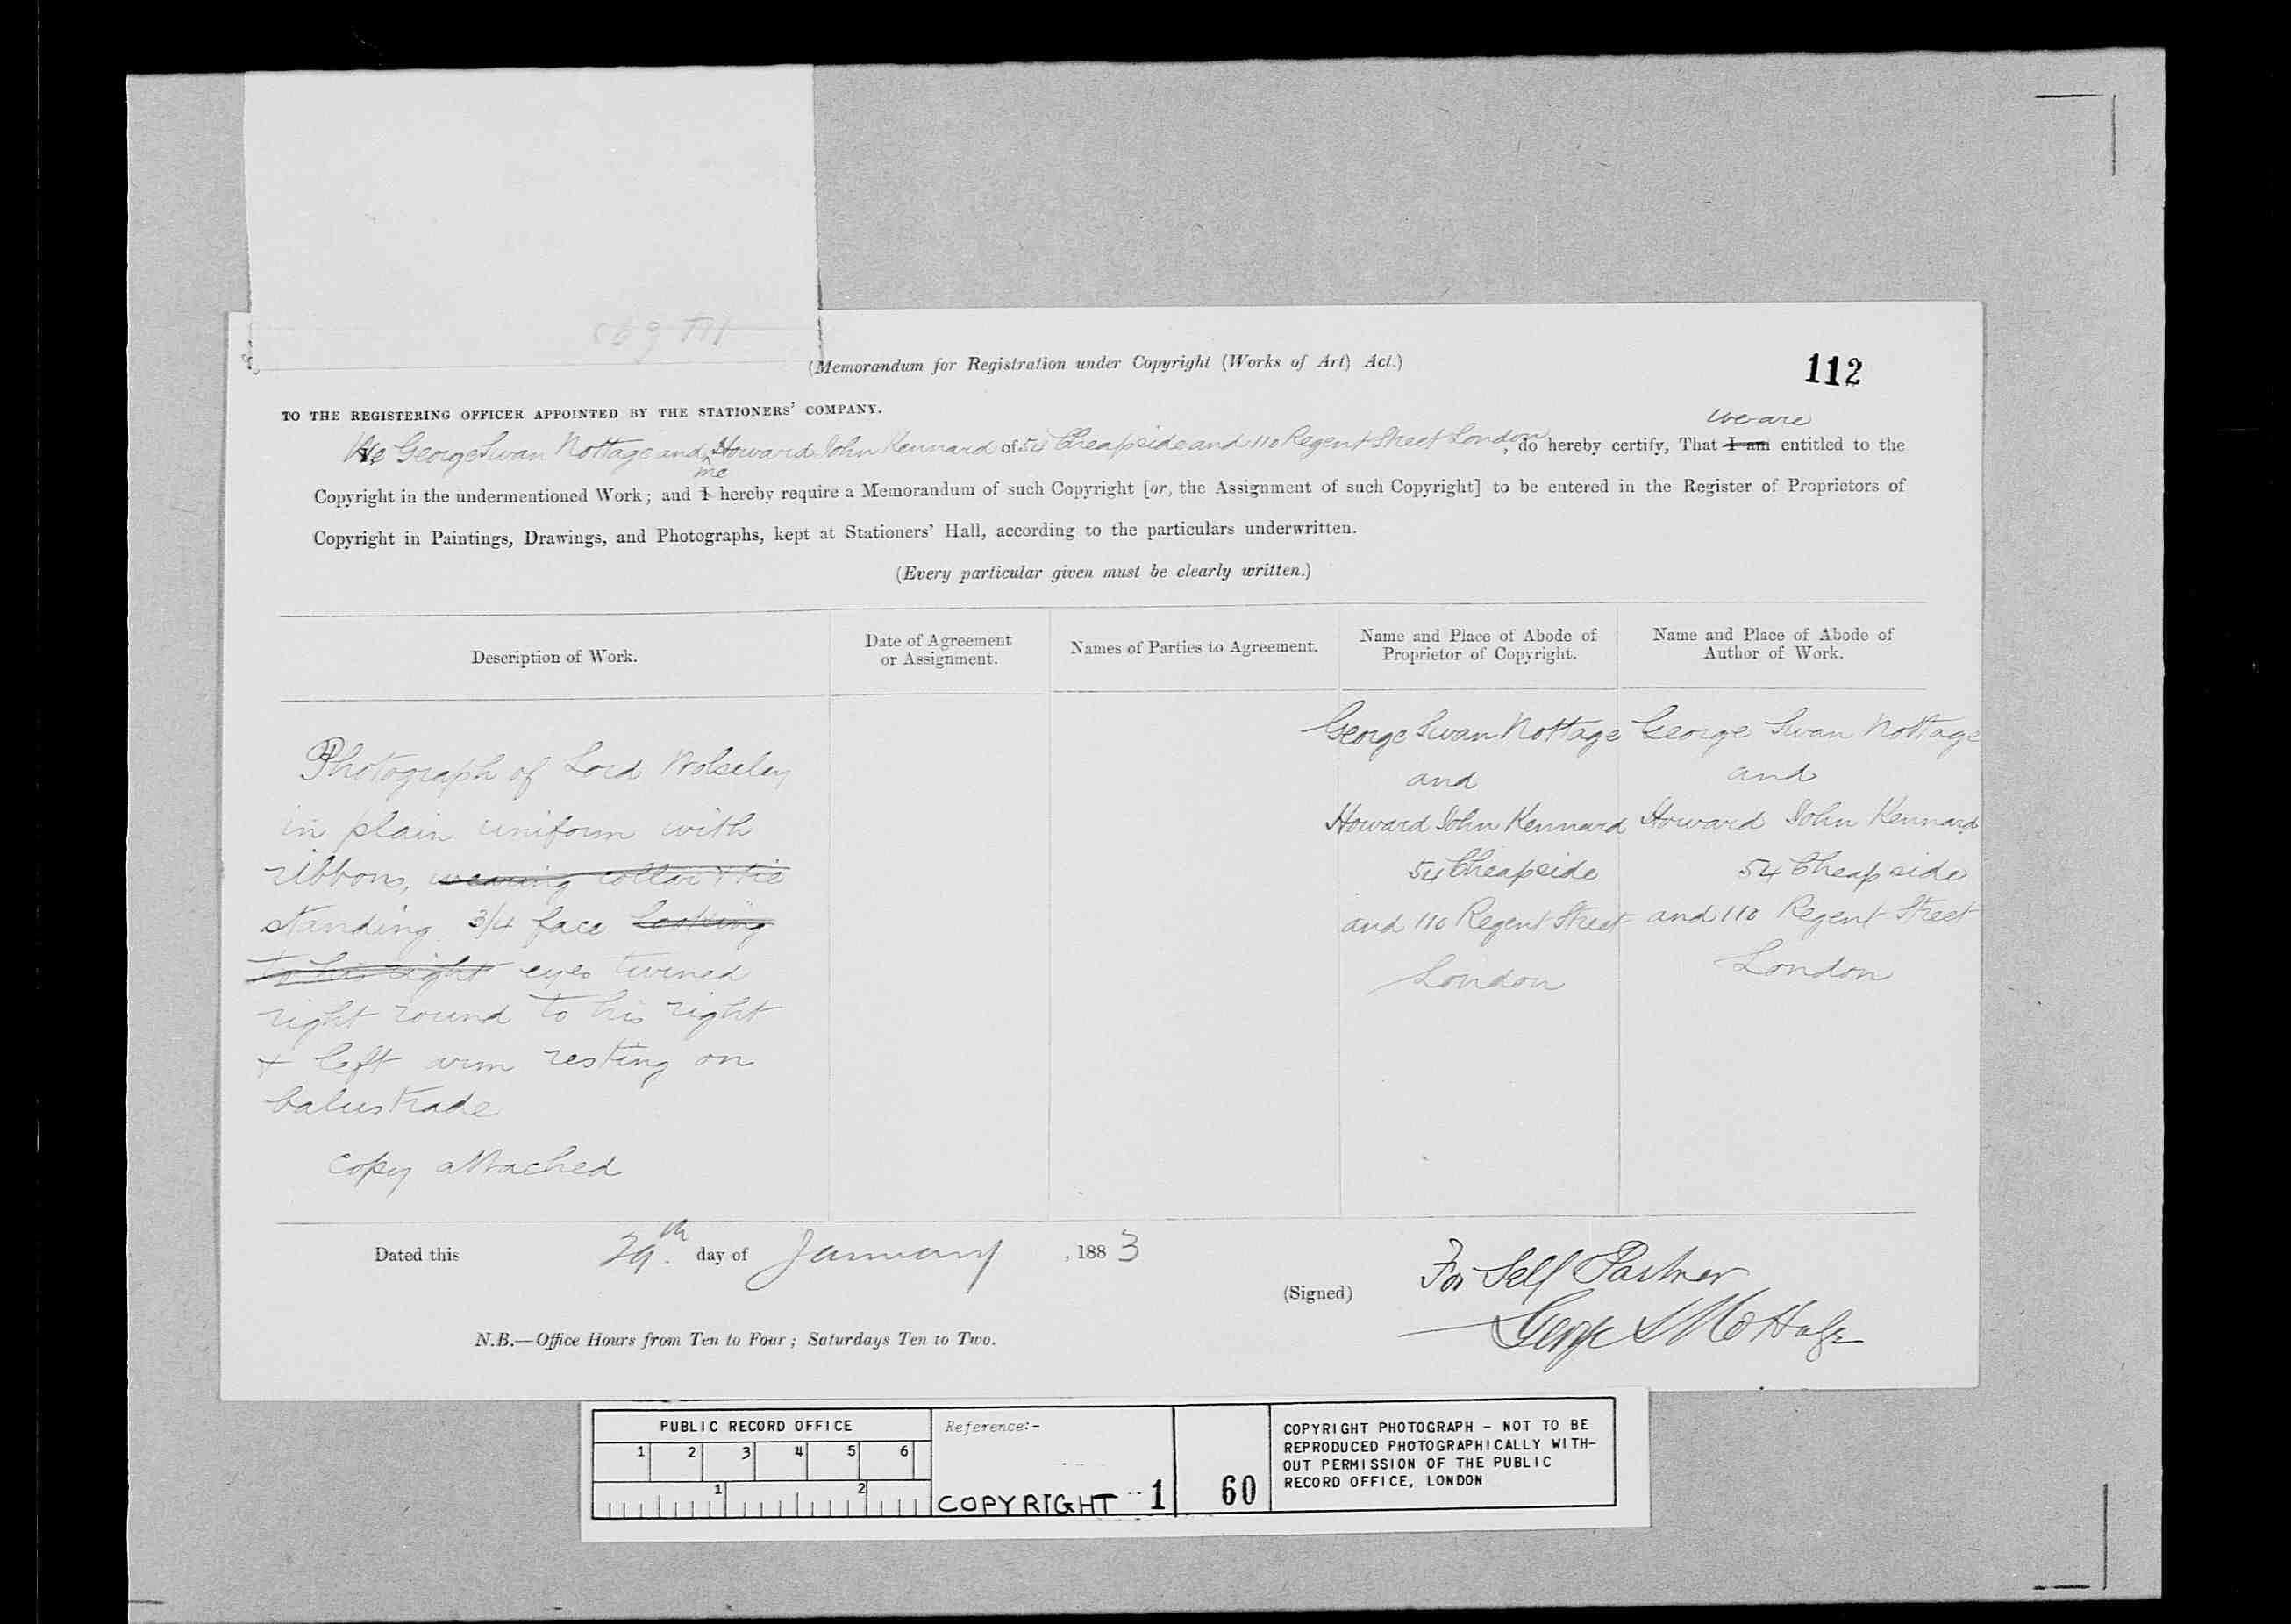 (Memorandum for Registration under Copyright (Works of Art) Act.)
112
TO THE REGISTERING OFFICER APPOINTED BY THE STATIONERS' COMPANY.
we are
We George Swan Nottage and Howard John Kennard of 54 Cheapside and 110 Regent Street London, do hereby certify, That I am entitled to the
Copyright in the undermentioned Work; and I hereby require a Memorandum of such Copyright [or, the Assignment of such Copyright] to be entered in the Register of Proprietors of
Copyright in Paintings, Drawings, and Photographs, kept at Stationers' Hall, according to the particulars underwritten.
(Every particular given must be clearly written.)
Description of Work.
Date of Agreement
or Assignment.
Names of Parties to Agreement.
Name and Place of Abode of
Proprietor of Copyright.
Name and Place of Abode of
Author of Work.
Photograph of Lord Wolseley
in plain uniform with
ribbons, wearing collar & tie
standing 3/4 face looking
to his right eyes turned
right round to his right
+ left arm resting on
balustrade
copy attached
George Swan Nottage
and
Howard John Kennard
54 Cheapside
and 110 Regent Street
London
George Swan Nottage
and
Howard John Kennard
54 Cheapside
and 110 Regent Street
London
Dated this 29th day of January, 1883
(Signed)
For Self Partner
George S Nottage
N.B.—Office Hours from Ten to Four; Saturdays Ten to Two.
PUBLIC RECORD OFFICE
1 2 3 4 5 6
1 2
Reference:-
COPYRIGHT 1
60
COPYRIGHT PHOTOGRAPH - NOT TO BE
REPRODUCED PHOTOGRAPHICALLY WITH-
OUT PERMISSION OF THE PUBLIC
RECORD OFFICE, LONDON